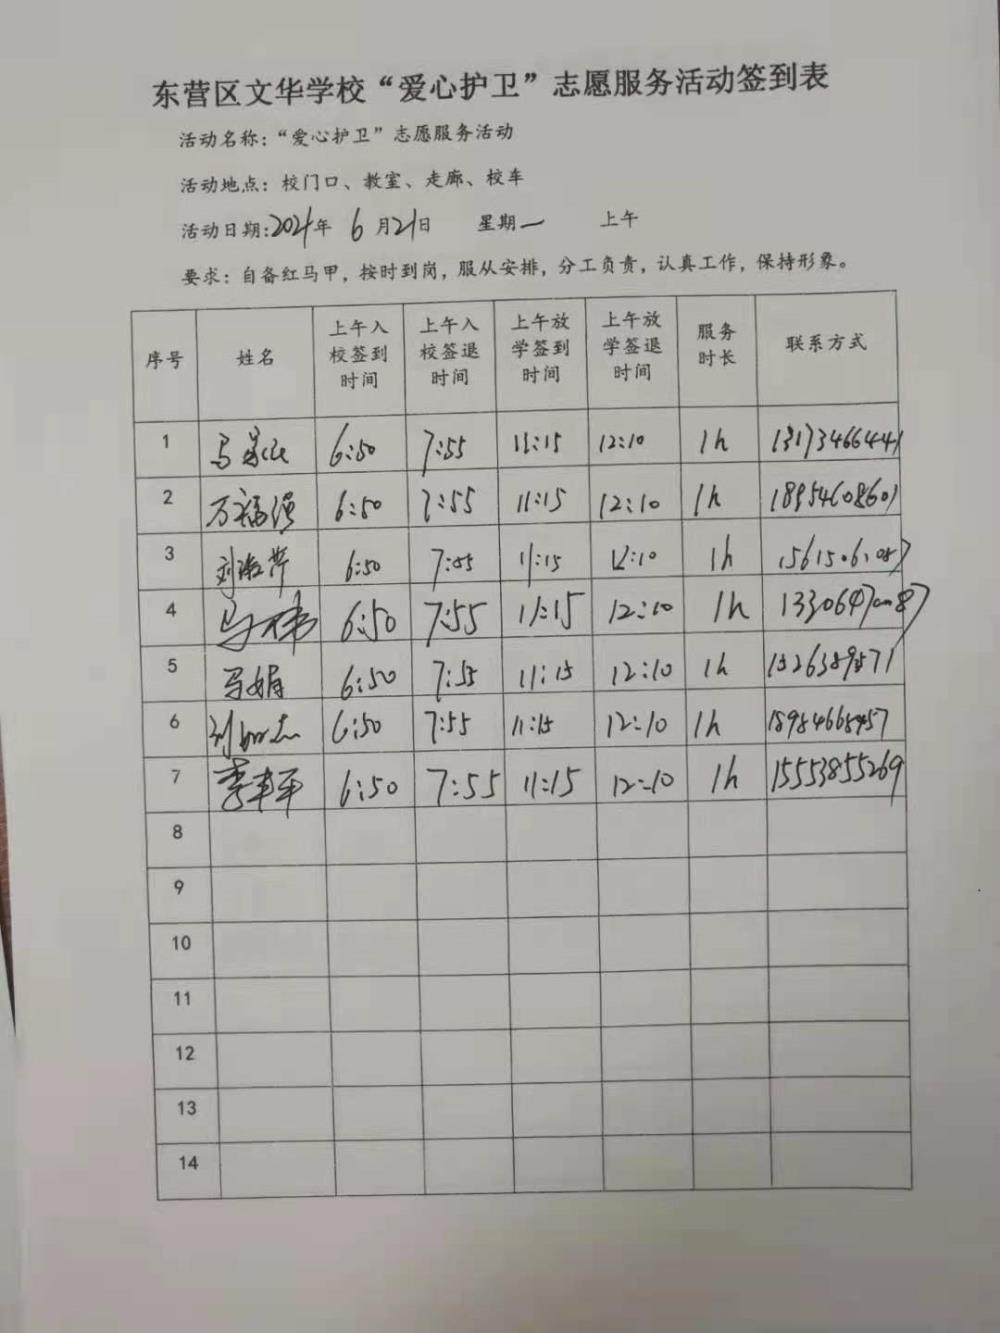 东营区文华学校“爱心护卫”志愿服务活动签到表
活动名称：“爱心护卫”志愿服务活动
活动地点：校门口、教室、走廊、校车
活动日期:2021年 6月21日 星期一 上午
要求：自备红马甲，按时到岗，服从安排，分工负责，认真工作，保持形象。
序号 姓名 上午入校签到时间 上午入校签退时间 上午放学签到时间 上午放学签退时间 服务时长 联系方式
1 6:50 7:55 11:15 12:10 1h 13173466441
2 万福强 6:50 7:55 11:15 12:10 1h 18954608601
3 6:50 7:55 11:15 12:10 1h
4 马伟 6:50 7:55 11:15 12:10 1h
5 马娟 6:50 7:55 11:15 12:10 1h
6 6:50 7:55 11:15 12:10 1h
7 6:50 7:55 11:15 12:10 1h 15553855269
8
9
10
11
12
13
14